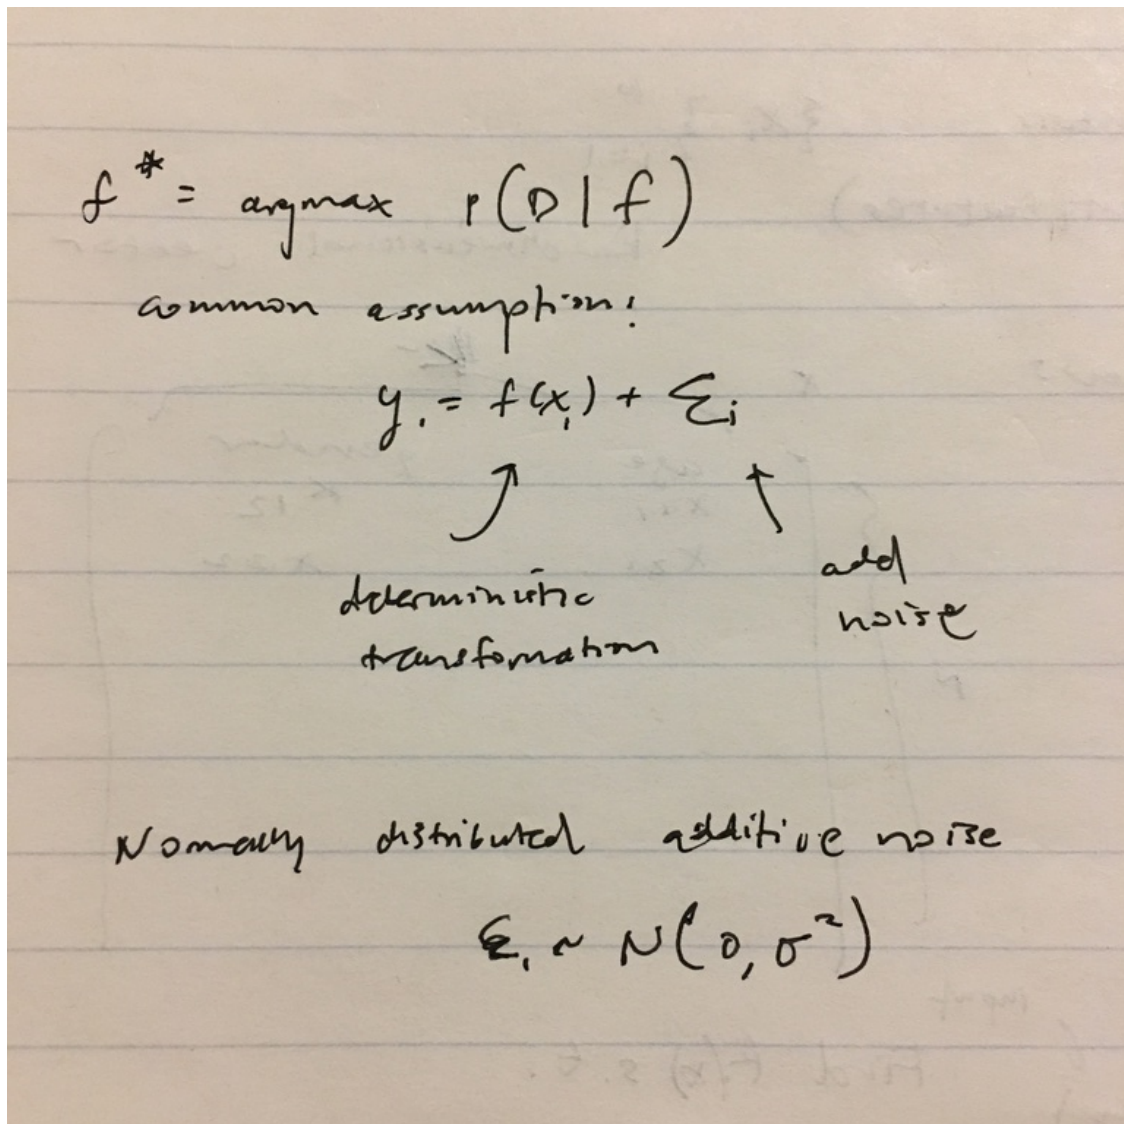 f* = argmax p(D|f)
common assumption:
yᵢ = f(xᵢ) + Σᵢ
deterministic
transformation
add
noise
Normally distributed additive noise
εᵢ ~ N(0, σ²)